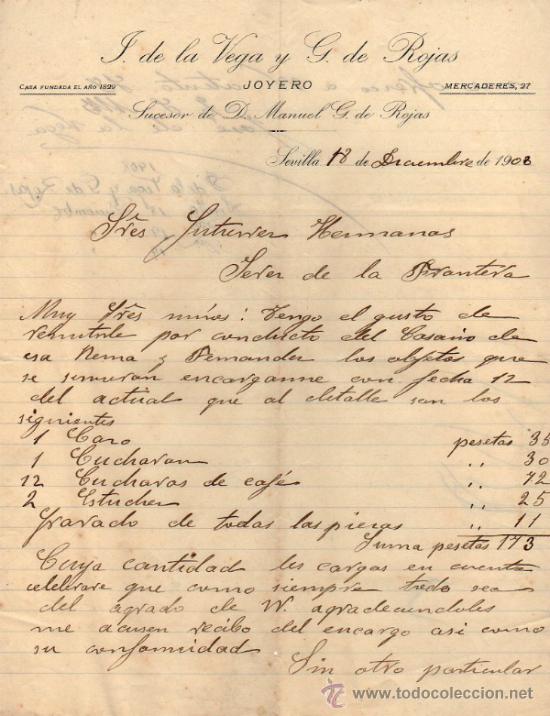 J. de la Vega y G. de Rojas
CASA FUNDADA EL AÑO 1829 JOYERO MERCADERES, 27
Sucesor de D. Manuel G. de Rojas
Sevilla 18 de Diciembre de 1908
Sres Gutierrez Hermanas
Jerez de la Frontera
Muy Sres mios: Tengo el gusto de
remitirle por conducto del Cosario de
esa Nema y Fernandez los objetos que
se sirvieron encargarme con fecha 12
del actual que al detalle son los
siguientes
1 Cazo pesetas 35
1 Cucharon ,, 30
12 Cucharas de café ,, 72
2 Estuches ,, 25
Gravado de todas las piezas ,, 11
Suma pesetas 173
Cuya cantidad les cargas en cuenta
celebrare que como siempre todo sea
del agrado de W. agradeciendoles
me acusen recibo del encargo asi como
su conformidad
Sin otro particular
www.todocoleccion.net